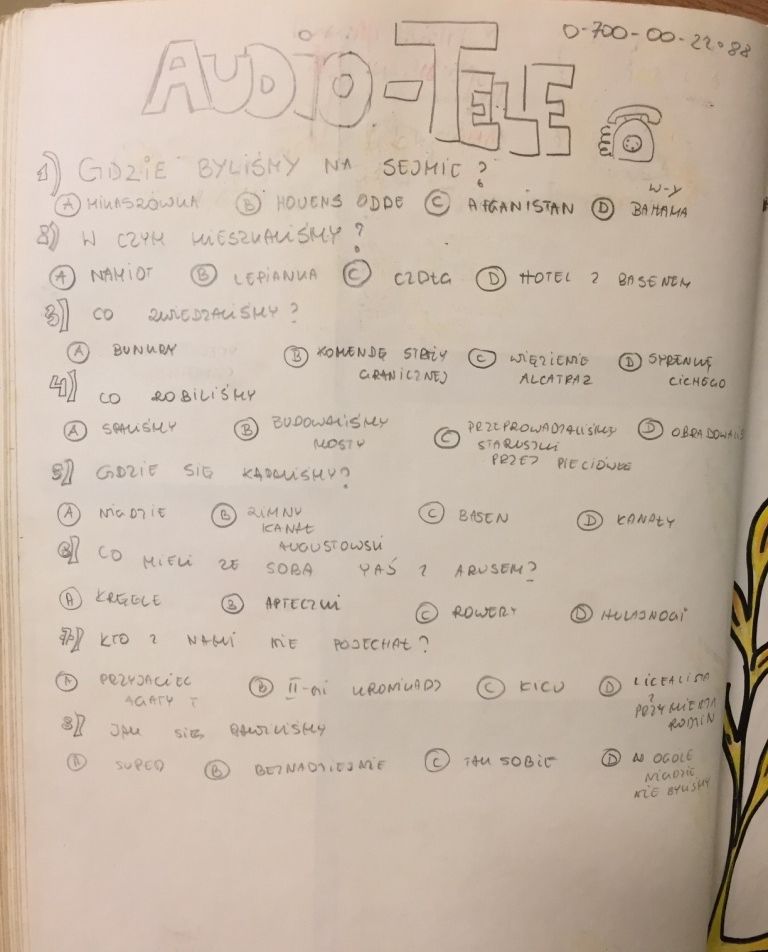 0-700-00-22-88
AUDIO-TELE
1) GDZIE BYLIŚMY NA SEJMIE?
A MIKASZÓWKA B HOUENS ODDE C AFGANISTAN D W-Y BAHAMA
2) W CZYM MIESZKALIŚMY?
A NAMIOT B LEPIANKA C CZOŁG D HOTEL Z BASENEM
3) CO ZWIEDZALIŚMY?
A BUNKRY B KOMENDĘ STRAŻY C WIĘZIENIE D SYRENKĘ
GRANICZNEJ ALCATRAZ CICHEGO
4) CO ROBILIŚMY
A SPALIŚMY B BUDOWALIŚMY C PRZEPROWADZALIŚMY D
MOSTY STARUSZKI
PRZEZ
5) GDZIE SIĘ KĄPALIŚMY?
A NIGDZIE B ZIMNY C BASEN D KANAŁY
KANAŁ
AUGUSTOWSKI
6) CO MIELI ZE SOBĄ YAŚ Z ARUSEM?
A KRĘGLE B APTECZKI C ROWERY D HULAJNOGI
7) KTO Z NAMI NIE POJECHAŁ?
A PRZYJACIEL B II-GI KRONIKARZ C KICU D LICEALISTA
AGATY T Z
PRZYMIERZA
RODZIN
8) JAK SIĘ BAWILIŚMY
A SUPER B BEZNADZIEJNIE C TAK SOBIE D W OGÓLE
NIGDZIE
NIE BYLIŚMY